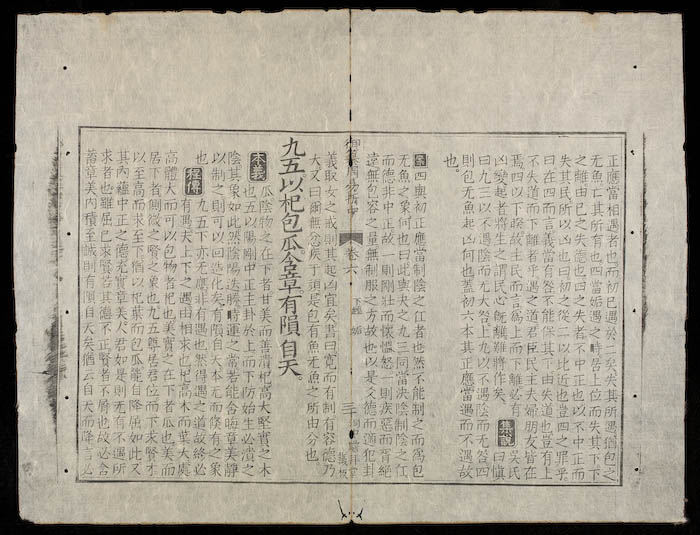 正應當相遇者也而初已遇於二矣失其所遇猶包之
无魚亡其所有也四當姤遇之時居上位而失其下下
之離由已之失德也四之失者不中正也以不中正而
失其民所以凶也曰初之從二以比近也豈四之罪乎
曰在四而言義當有咎不能保其下由失道也豈有上
不失道而下離者乎遇之道君臣民主夫婦朋友皆在
焉四以下睽故主民而言爲上而下離必有 集說 吳氏
凶變起者將生之謂民心旣離難將作矣 曰愼
曰九三以不遇陰而无大咎上九以不遇陰而无咎四
則包无魚起凶何也蓋初六本其正應當遇而不遇故
也。
案四與初正應當制陰之任者也然不能制之而爲包
无魚之象何也曰此與夬之九三同當決陰制陰之任
而德非中正故一則剛壯而懷慍怒一則疾惡而胥絶
遠无包容之量无制服之方故也以是夬德而適犯卦
御纂周易折中 卷六 下經 姤
義取女之戒則其起凶宜矣書曰寬而有制有容德乃
大又曰爾无忿疾于頑是包有魚无魚之所由分也
九五以杞包瓜含章有隕自天。
本義 瓜陰物之在下者甘美而善潰杞高大堅實之木
也五以陽剛中正主卦於上而下防始生必潰之
陰其象如此然陰陽迭勝時運之常若能含晦章美靜
以制之則可以回造化矣有隕自天本无而倏有之象
也 程傳 九五下亦无應非有遇也然得遇之道故終必
有遇夫上下之遇由相求也杞高木而葉大處
高體大而可以包物者杞也美實之在下者瓜也美而
居下者側微之賢之象也九五尊居君位而下求賢才
以至高而求至下猶以杞葉而包瓜能自降屈如此又
其內蘊中正之德充實章美人君如是則无有不遇所
求者也雖屈已求賢若其德不正賢者不屑也故必含
蓄章美內積至誠則有隕自天矣猶云自天而降言必